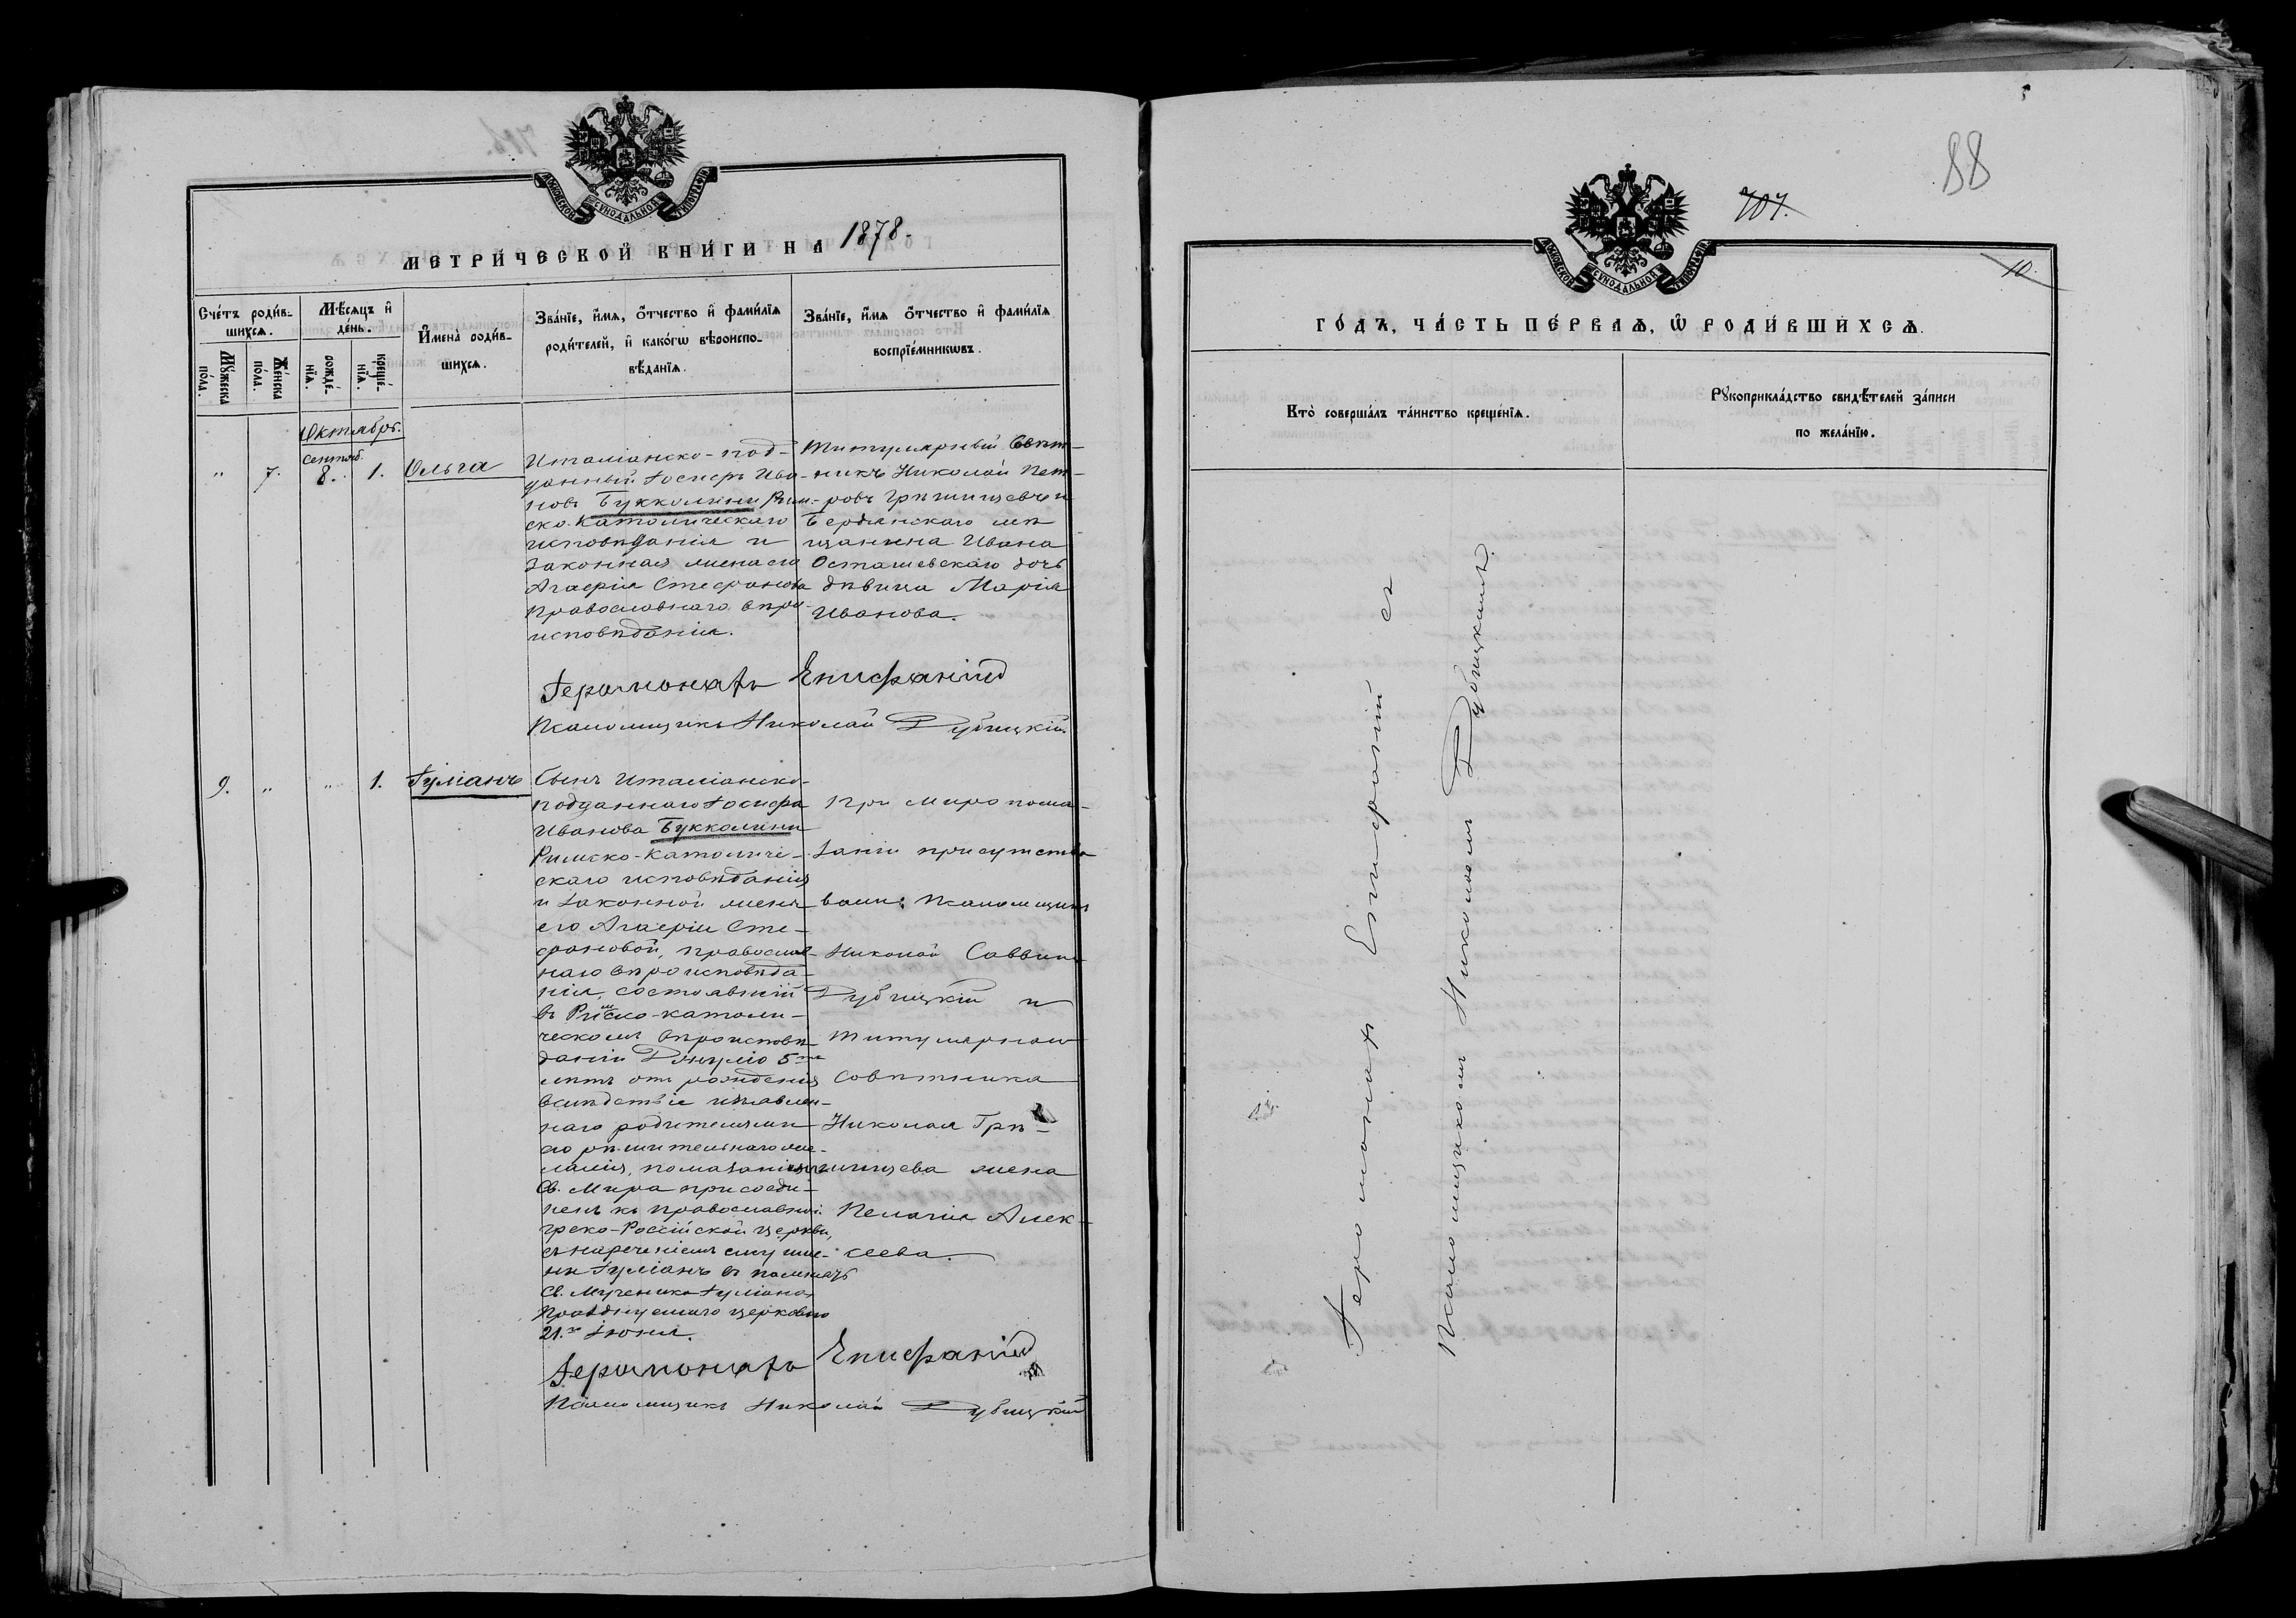 МОСКОВСКОЙ СѴНОДАЛЬНОЙ ТИПОГРАФІИ
МЕТРИ́ЧЕСКОЙ КНИ́ГИ НА 1878.
Сче́тъ роди́в-
шихся.
Мѣ́сяцъ и҆
де́нь.
И҆мена̀ роди́в-
шихся.
Зва́нїе, и҆́мя, ѻ҆́тчество и҆ фами́лїя
роди́телей, и҆ како́гѡ вѣроиспо-
вѣ́данїя.
Зва́нїе, и҆́мя ѻ҆́тчество и҆ фами́лїя
воспрїе́мникѡвъ.
Мꙋ́жеска
по́ла.
Же́нска
по́ла.
рожде́-
нїя.
креще́-
нїя.
Октябрь.
Сентяб.
" 7. 8. 1. Ольга
Италіанско-под-
данный Іосифъ Ива-
новъ Букколини Рим-
ско-Католическаго
исповѣданія и
законная жена его
Агаѳія Стефанова
Православнаго вѣро-
исповѣданія.
Титулярный Совѣт-
никъ Николай Пет-
ровъ Грѣшищевъ и
Бердянскаго мѣ
щанина Ивана
Осташевскаго дочь
дѣвица Марія
Иванова.
Іеромонахъ Епифаній
Псаломщикъ Николай Дубицкій
9. " " 1. Іуліанъ
Сынъ Италіанско-
подданнаго Іосифа
Иванова Букколини
Римско-Католиче-
скаго исповѣданія
и законной жены
его Агаѳіи Сте-
фановой, православ-
наго вѣроисповѣда-
нія, состоявшій
въ Римско-католи-
ческомъ вѣроисповѣ
даніи Джуліо 5ти
лѣтъ отъ рожденія
вслѣдствіе изъявлен-
наго родителями
его рѣшительнаго же-
ланія, помазаніемъ
Св. Мира присоеди-
ненъ къ православной
греко-Россійской церкви,
съ нареченіемъ ему име-
ни Іуліанъ въ память
Св. Мученика Іуліана,
Празднуемаго церковію
21.го Іюня.
При миропома-
заніи присутство
вали: Псаломщикъ
Николай Саввинъ
Дубицкій и
Титулярнаго
Совѣтника
Николая Грѣ-
шищева жена
Пелагія Алек-
сеева.
Іеромонахъ Епифаній
Псаломщикъ Николай Дубицкій
88
707.
10.
МОСКОВСКОЙ СѴНОДАЛЬНОЙ ТИПОГРАФІИ
ГО́ДЪ, ЧА́СТЬ ПЕ́РВАЯ, Ѡ҆ РОДИ́ВШИХСЯ.
Кто̀ соверша́лъ та́инство креще́нїя.
Рꙋкоприкла́дство свидѣ́телей за́писи
по жела́нїю.
Іеромонахъ Епифаній съ
Псаломщикомъ Николаемъ Дубицкимъ.